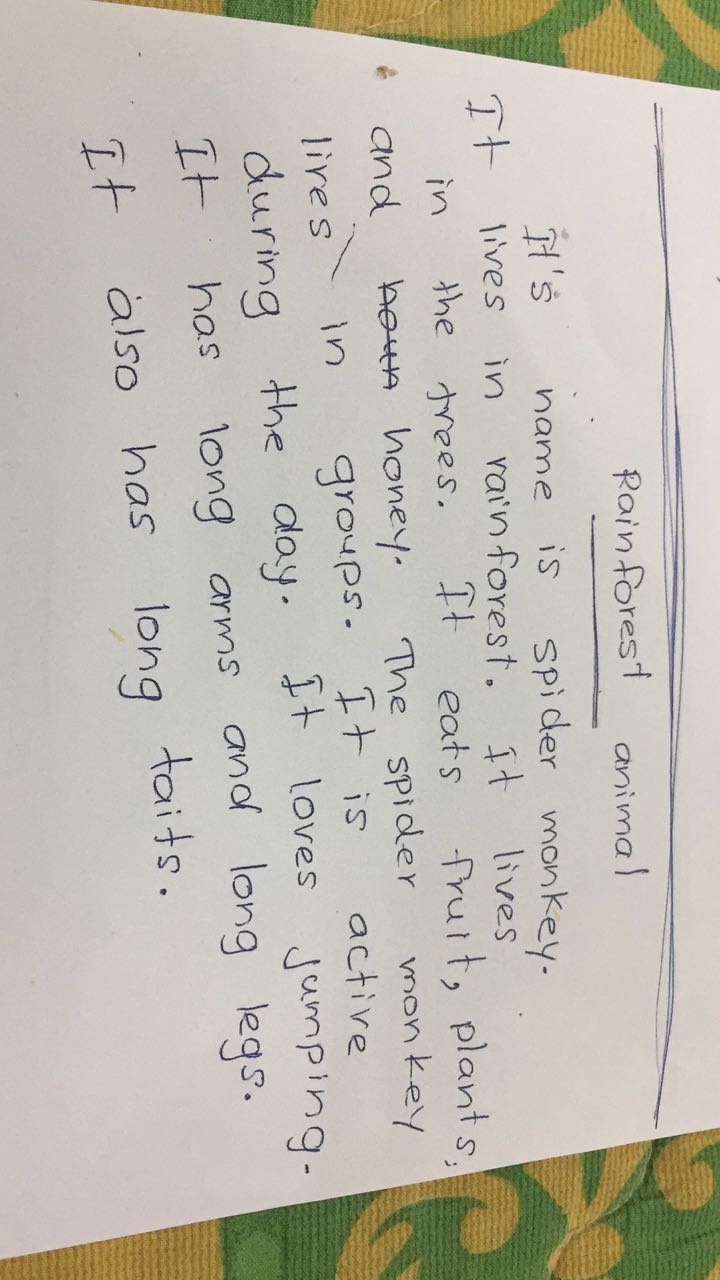 Rainforest animal
It's name is spider monkey.
It lives in rainforest. It lives
in the trees. It eats fruit, plants,
and honey. The spider monkey
lives in groups. It is active
during the day. It loves jumping.
It has long arms and long legs.
It also has long taits.